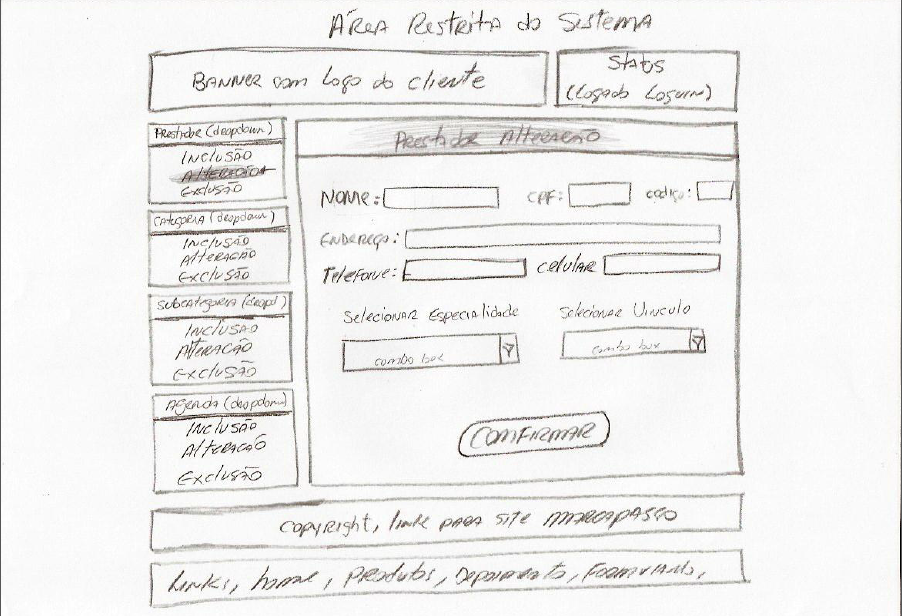 Área Restrita do Sistema
Banner com Logo do cliente
Status
(Logado Loguin)
Prestador (dropdown)
Inclusão
Alteração
Exclusão
Categoria (dropdown)
Inclusão
Alteração
Exclusão
Subcategoria (dropd)
Inclusão
Alteração
Exclusão
Agenda (dropdown)
Inclusão
Alteração
Exclusão
Prestador Alteração
Nome: CPF: codigo:
Endereço:
Telefone: celular
Selecionar Especialidade Selecionar Vinculo
combo box combo box
CONFIRMAR
copyright, link para site marcapasso
Links, home, Produtos, Depoimento, Formulario,